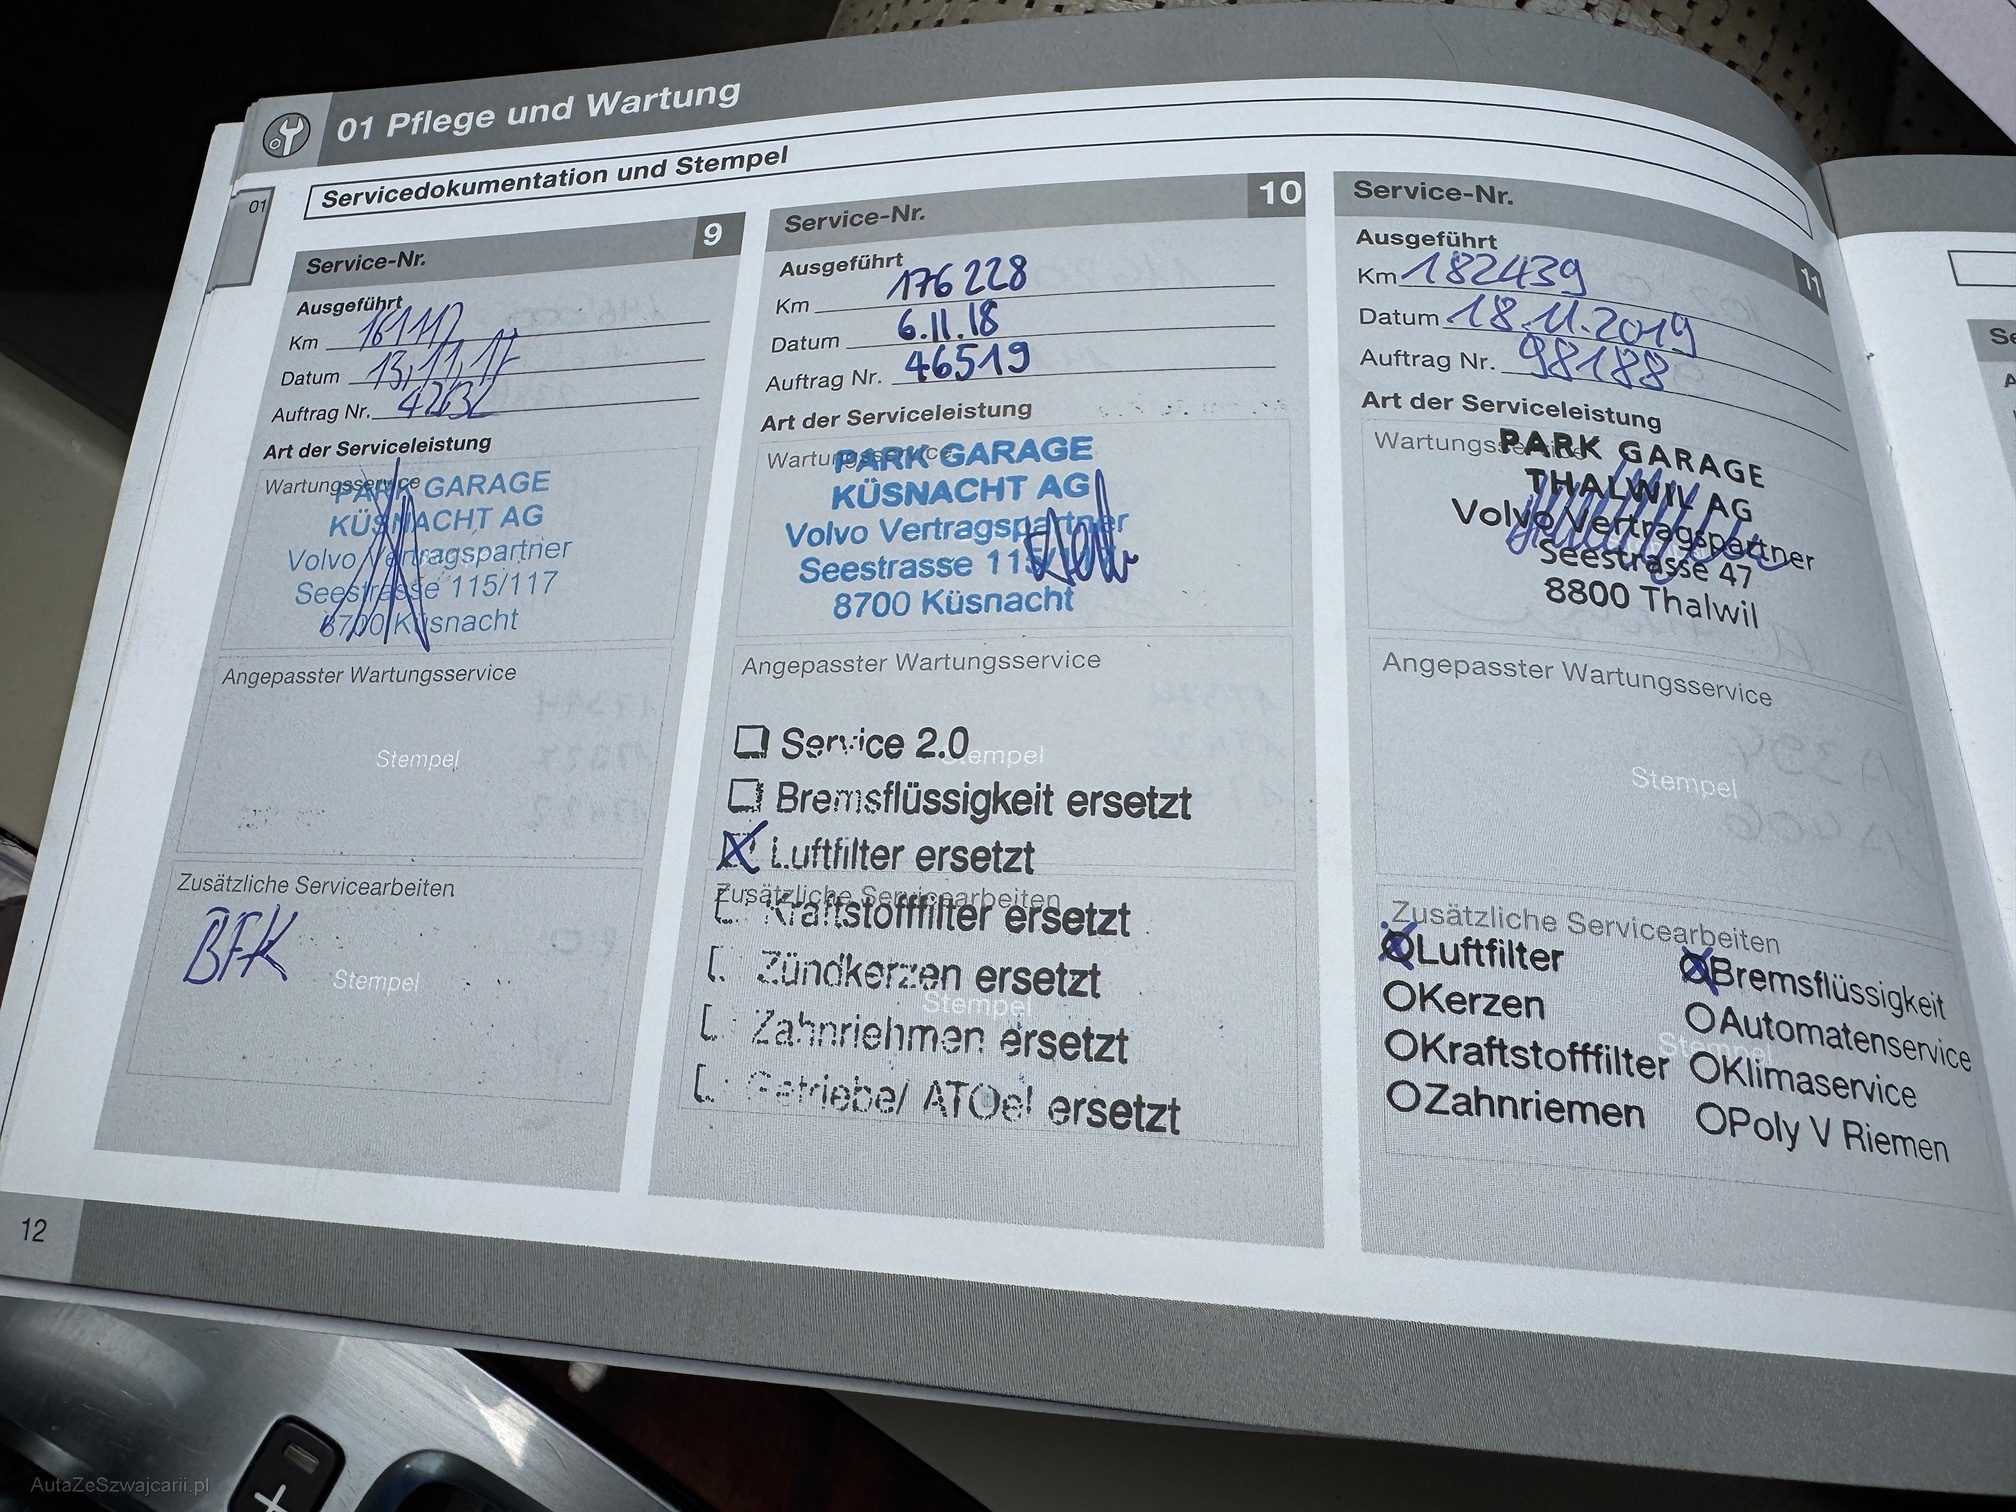 01 Pflege und Wartung
Servicedokumentation und Stempel
01
Service-Nr. 9
Ausgeführt
Km 161117
Datum 13.11.17
Auftrag Nr.
Art der Serviceleistung
Wartungsservice
PARK GARAGE
KÜSNACHT AG
Volvo Vertragspartner
Seestrasse 115/117
8700 Küsnacht
Angepasster Wartungsservice
Stempel
Zusätzliche Servicearbeiten
BFK
Stempel
Service-Nr. 10
Ausgeführt
Km 176228
Datum 6.11.18
Auftrag Nr. 46519
Art der Serviceleistung
Wartungsservice
PARK GARAGE
KÜSNACHT AG
Volvo Vertragspartner
Seestrasse 115/117
8700 Küsnacht
Angepasster Wartungsservice
Service 2.0
Stempel
Bremsflüssigkeit ersetzt
Luftfilter ersetzt
Zusätzliche Servicearbeiten
Kraftstofffilter ersetzt
Zündkerzen ersetzt
Stempel
Zahnriehmen ersetzt
Getriebe/ ATOel ersetzt
Service-Nr. 11
Ausgeführt
Km 182439
Datum 18.11.2019
Auftrag Nr. 98188
Art der Serviceleistung
Wartungsservice
PARK GARAGE
THALWIL AG
Volvo Vertragspartner
Seestrasse 47
8800 Thalwil
Angepasster Wartungsservice
Stempel
Zusätzliche Servicearbeiten
Luftfilter Bremsflüssigkeit
Kerzen Automatenservice
Stempel
Kraftstofffilter Klimaservice
Zahnriemen Poly V Riemen
12
AutaZeSzwajcarii.pl